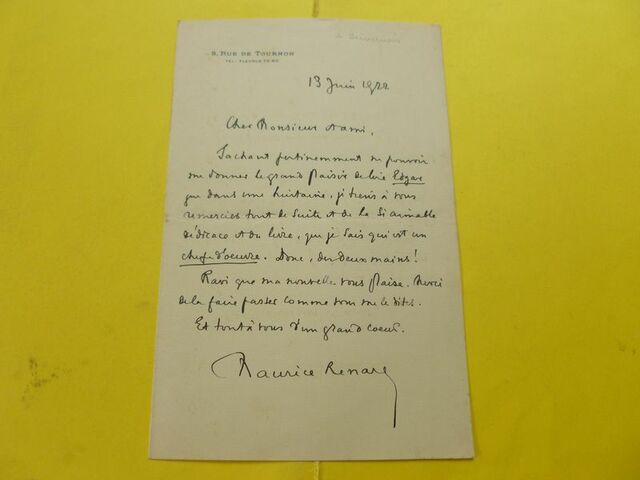 3, RUE DE TOURNON
TÉL. FLEURUS
13 Juin 1922
Cher Monsieur et ami,
Sachant pertinemment ne pouvoir
me donner le grand plaisir de lire Edgar
que dans une huitaine, je tiens à vous
remercier tout de suite et de la si aimable
dédicace et du livre, que je sais qui est un
chef d'oeuvre. Donc, des deux mains!
Ravi que ma nouvelle vous plaise. Merci
de la faire passer comme vous me le dites.
Et tout à vous d'un grand coeur.
Maurice Renard